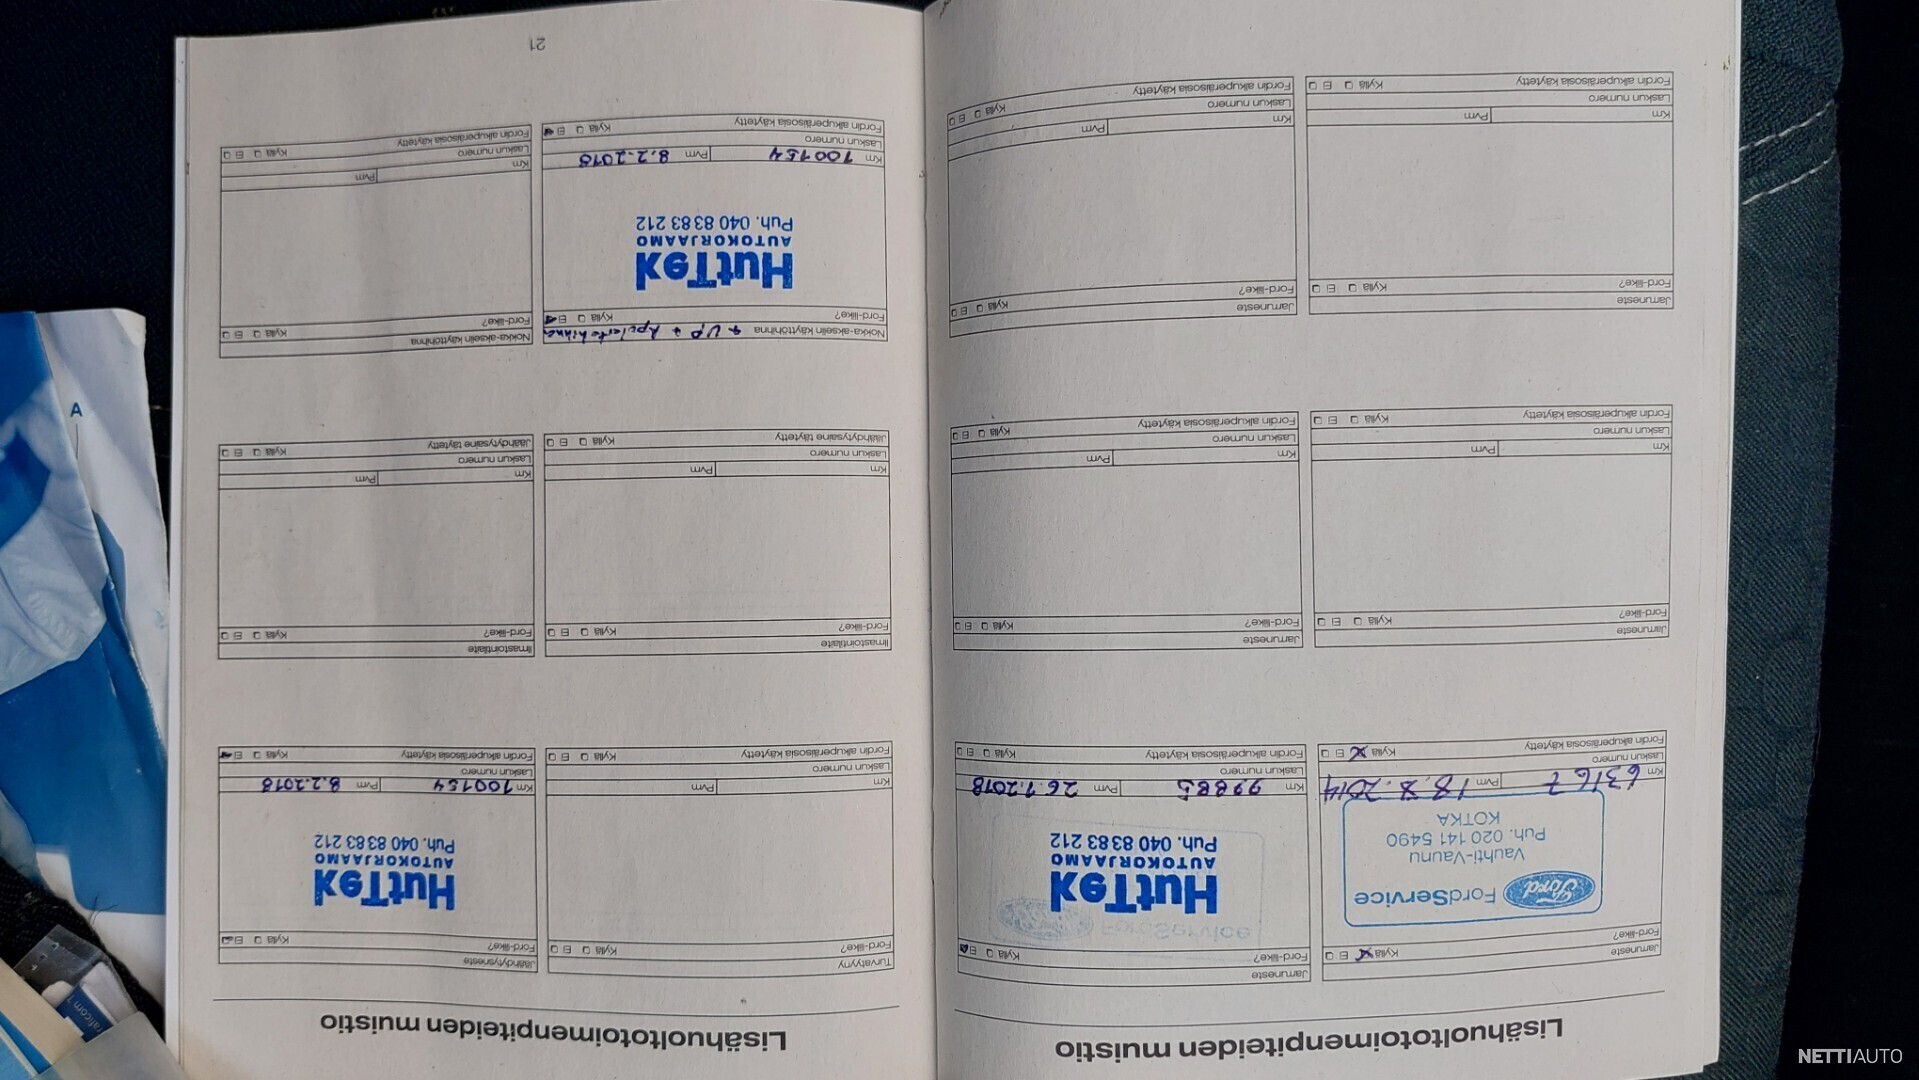 Lisähuoltotoimenpiteiden muistio
Jarruneste
Ford-liike? Kyllä Ei
FordService
Ford
Vauhti-Vaunu
Puh. 020 141 5490
KOTKA
Km 63167 Pvm 2014
Laskun numero
Fordin alkuperäisosia käytetty Kyllä Ei
Jarruneste
Ford-liike? Kyllä Ei
FordService
HutTek
AUTOKORJAAMO
Puh. 040 8383 212
Km 99885 Pvm 26.1.2018
Laskun numero
Fordin alkuperäisosia käytetty Kyllä Ei
Jarruneste
Ford-liike? Kyllä Ei
Km Pvm
Laskun numero
Fordin alkuperäisosia käytetty Kyllä Ei
Jarruneste
Ford-liike? Kyllä Ei
Km Pvm
Laskun numero
Fordin alkuperäisosia käytetty Kyllä Ei
Jarruneste
Ford-liike? Kyllä Ei
Km Pvm
Laskun numero
Fordin alkuperäisosia käytetty Kyllä Ei
Jarruneste
Ford-liike? Kyllä Ei
Km Pvm
Laskun numero
Fordin alkuperäisosia käytetty Kyllä Ei
Lisähuoltotoimenpiteiden muistio
Turvatyyny
Ford-liike? Kyllä Ei
Km Pvm
Laskun numero
Fordin alkuperäisosia käytetty Kyllä Ei
Jäähdytysneste
Ford-liike? Kyllä Ei
HutTek
AUTOKORJAAMO
Puh. 040 8383 212
Km 100154 Pvm 8.2.2018
Laskun numero
Fordin alkuperäisosia käytetty Kyllä Ei
Ilmastointilaite
Ford-liike? Kyllä Ei
Km Pvm
Laskun numero
Jäähdytysaine täytetty Kyllä Ei
Ilmastointilaite
Ford-liike? Kyllä Ei
Km Pvm
Laskun numero
Jäähdytysaine täytetty Kyllä Ei
Nokka-akselin käyttöhihna + VP + Apulaitehihna
Ford-liike? Kyllä Ei
HutTek
AUTOKORJAAMO
Puh. 040 8383 212
Km 100154 Pvm 8.2.2018
Laskun numero
Fordin alkuperäisosia käytetty Kyllä Ei
Nokka-akselin käyttöhihna Kyllä Ei
Ford-liike? Kyllä Ei
Km Pvm
Laskun numero
Fordin alkuperäisosia käytetty Kyllä Ei
21
A
NETTIAUTO